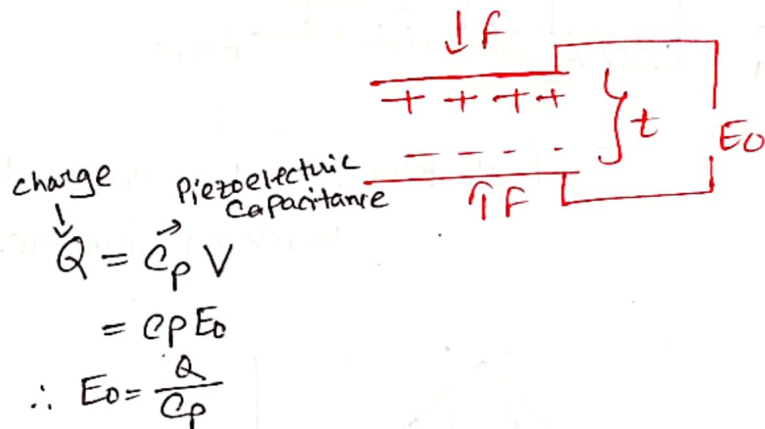 ↓ F
+ + + +
t
E0
- - - -
↑F
charge
↓
Piezoelectric
Capacitance
Q = Cp V
= Cp E0
∴ E0 = Q / Cp